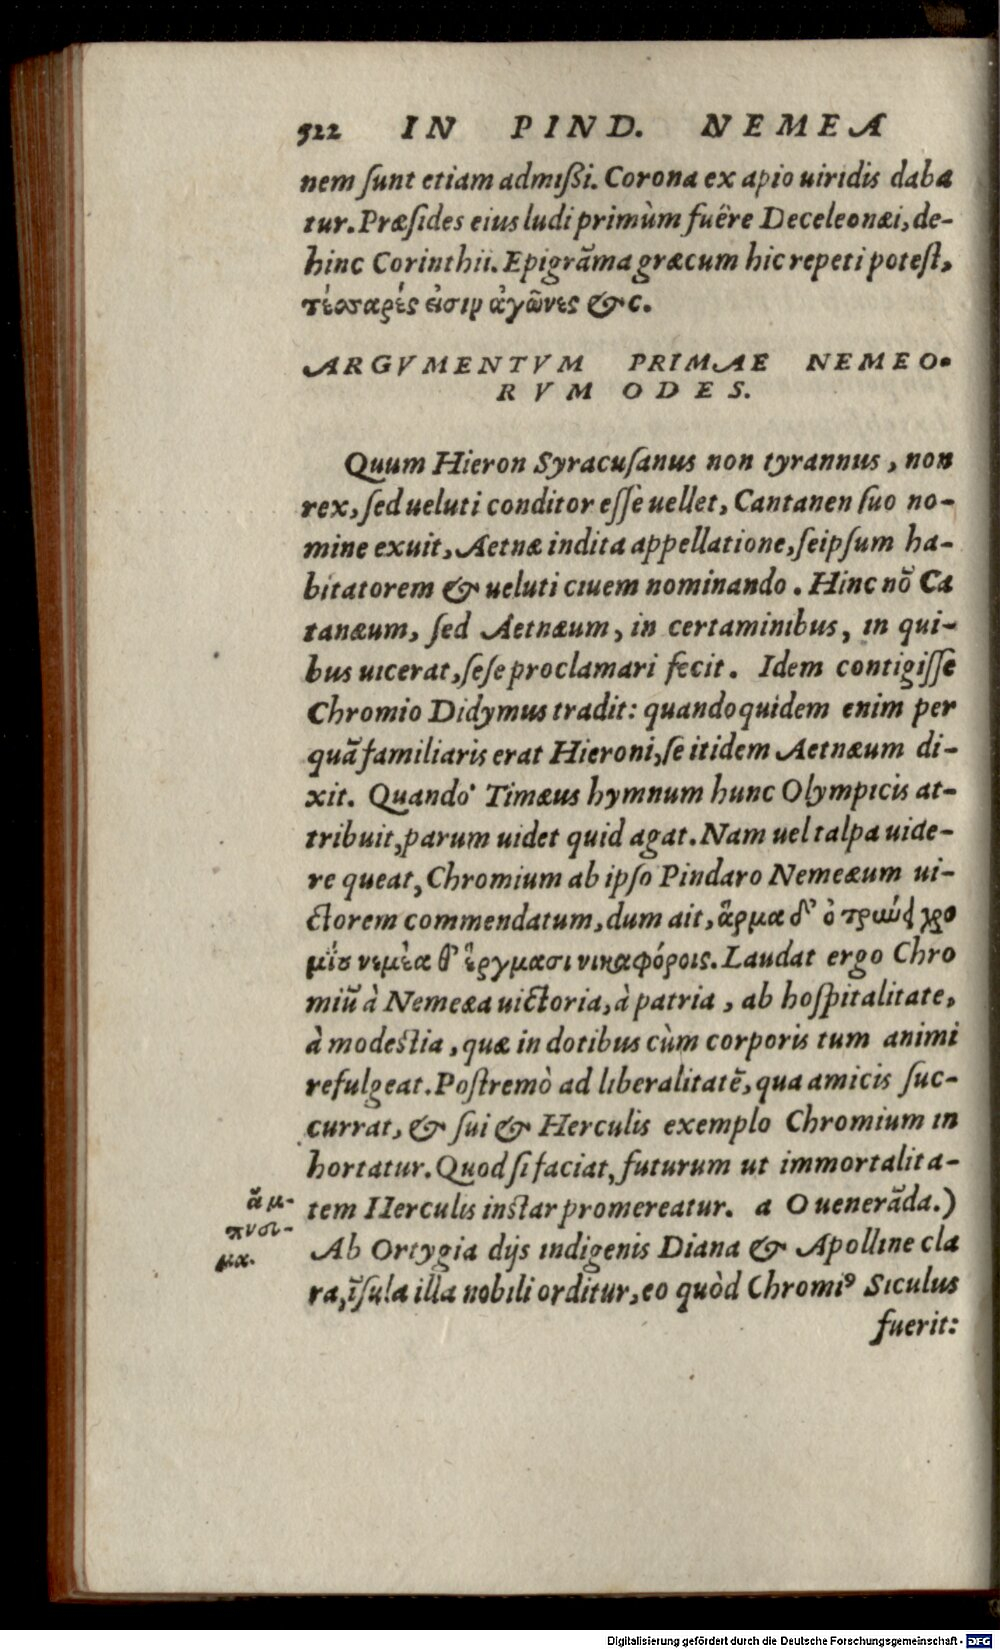 522 IN PIND. NEMEA
nem ſunt etiam admißi. Corona ex apio uiridis daba
tur. Præſides eius ludi primùm fuêre Deceleonæi, de-
hinc Corinthii. Epigrãma græcum hic repeti poteſt,
τέσσαρές εἰσιν ἀγῶνες &c.
ARGVMENTVM PRIMAE NEMEO-
RVM ODES.
Quum Hieron Syracuſanus non tyrannus, non
rex, ſed ueluti conditor eſſe uellet, Cantanen ſuo no-
mine exuit, Aetnæ indita appellatione, ſeipſum ha-
bitatorem & ueluti ciuem nominando. Hinc nõ Ca
tanæum, ſed Aetnæum, in certaminibus, in qui-
bus uicerat, ſeſe proclamari fecit. Idem contigiſſe
Chromio Didymus tradit: quandoquidem enim per
quã familiaris erat Hieroni, ſe itidem Aetnæum di-
xit. Quando' Timæus hymnum hunc Olympicis at-
tribuit, parum uidet quid agat. Nam uel talpa uide-
re queat, Chromium ab ipſo Pindaro Nemeæum ui-
ctorem commendatum, dum ait, ἅρμα δ' ὀτρωύς χρο
μίου νεμέα θ' ἔργμασι νικαφόροις. Laudat ergo Chro
miũ à Nemeæa uictoria, à patria, ab hoſpitalitate,
à modeſtia, quæ in dotibus cùm corporis tum animi
refulgeat. Poſtremò ad liberalitatẽ, qua amicis ſuc-
currat, & ſui & Herculis exemplo Chromium in
hortatur. Quod ſi faciat, futurum ut immortalita-
tem Herculis inſtar promereatur. a O uenerãda.)
ἄμ-
πνυσι-
μα.
Ab Ortygia dijs indigenis Diana & Apolline cla
ra, ĩſula illa nobili orditur, eo quòd Chromiꝰ Siculus
fuerit:
Digitalisierung gefördert durch die Deutsche Forschungsgemeinschaft - DFG